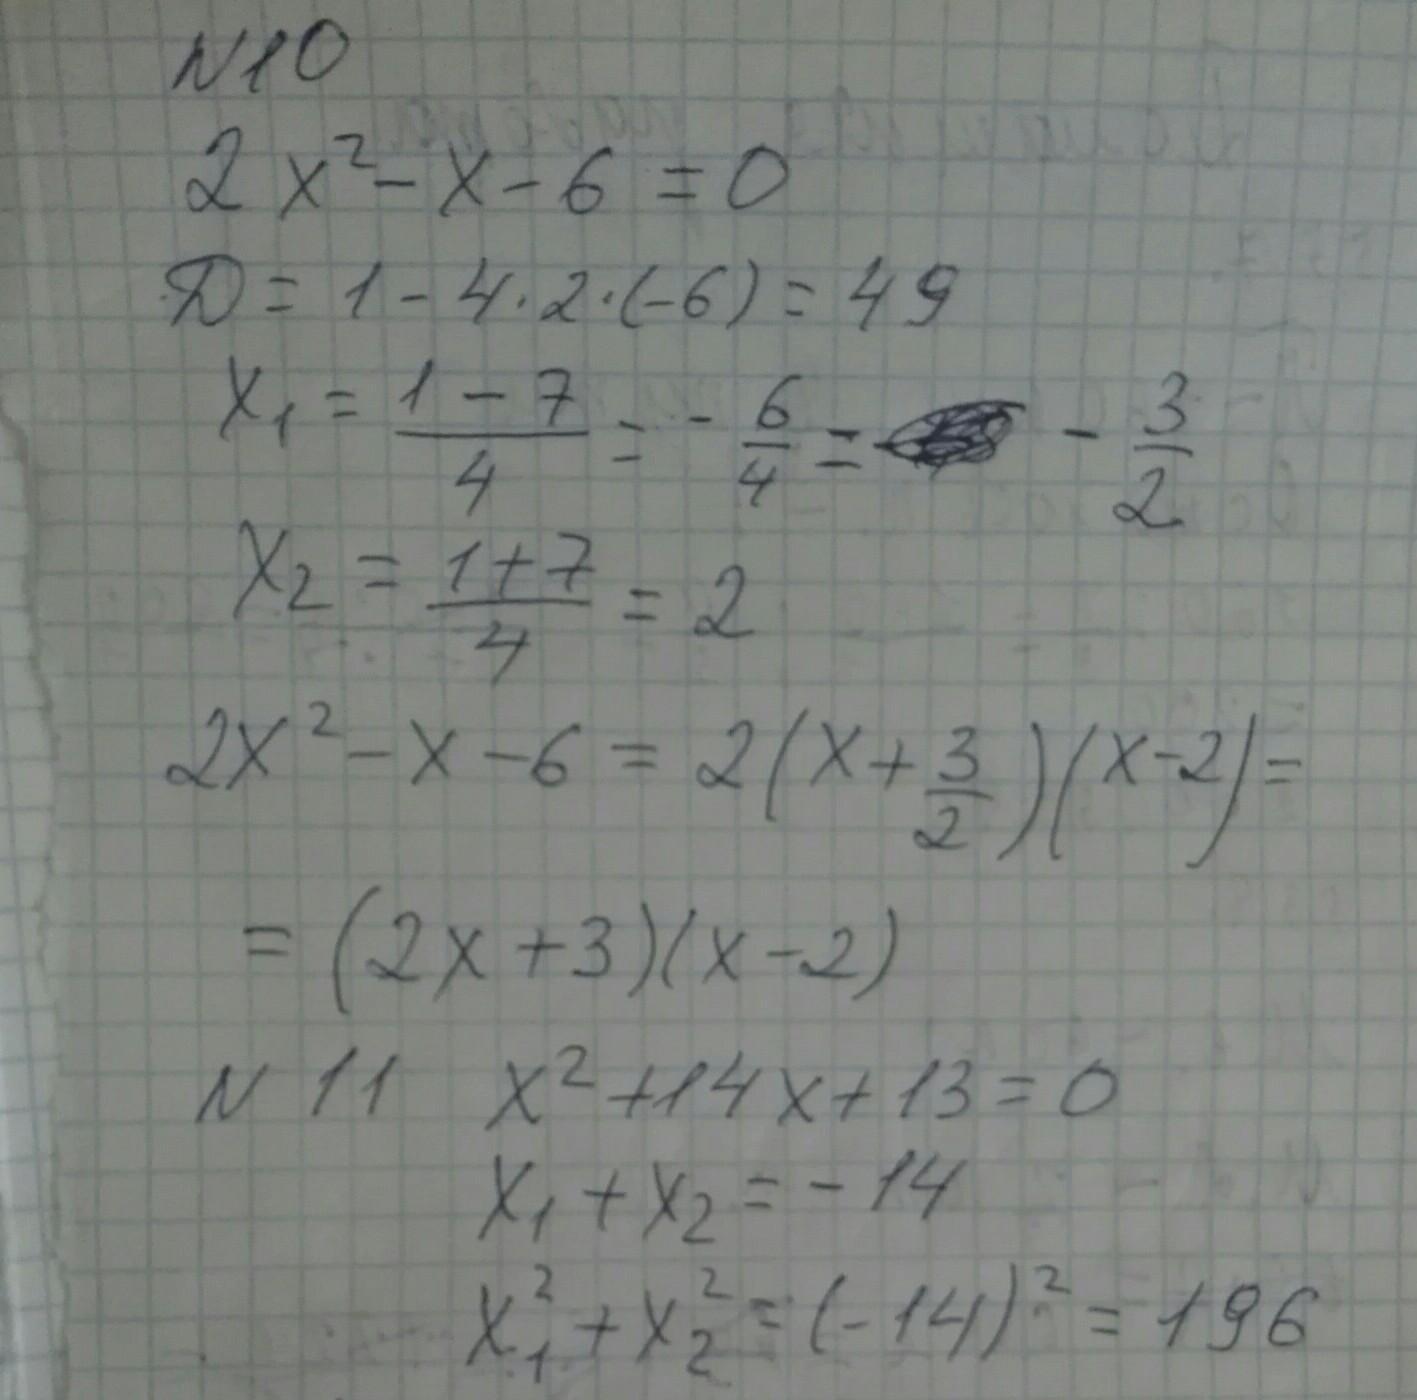 N10
2x² - x - 6 = 0
Д = 1 - 4·2·(-6) = 49
x₁ = (1 - 7)/4 = - 6/4 = - 3/2
x₂ = (1+7)/4 = 2
2x² - x - 6 = 2(x + 3/2)(x-2) =
= (2x + 3)(x - 2)
N 11 x² + 14x + 13 = 0
x₁ + x₂ = - 14
x₁² + x₂² = (-14)² = 196